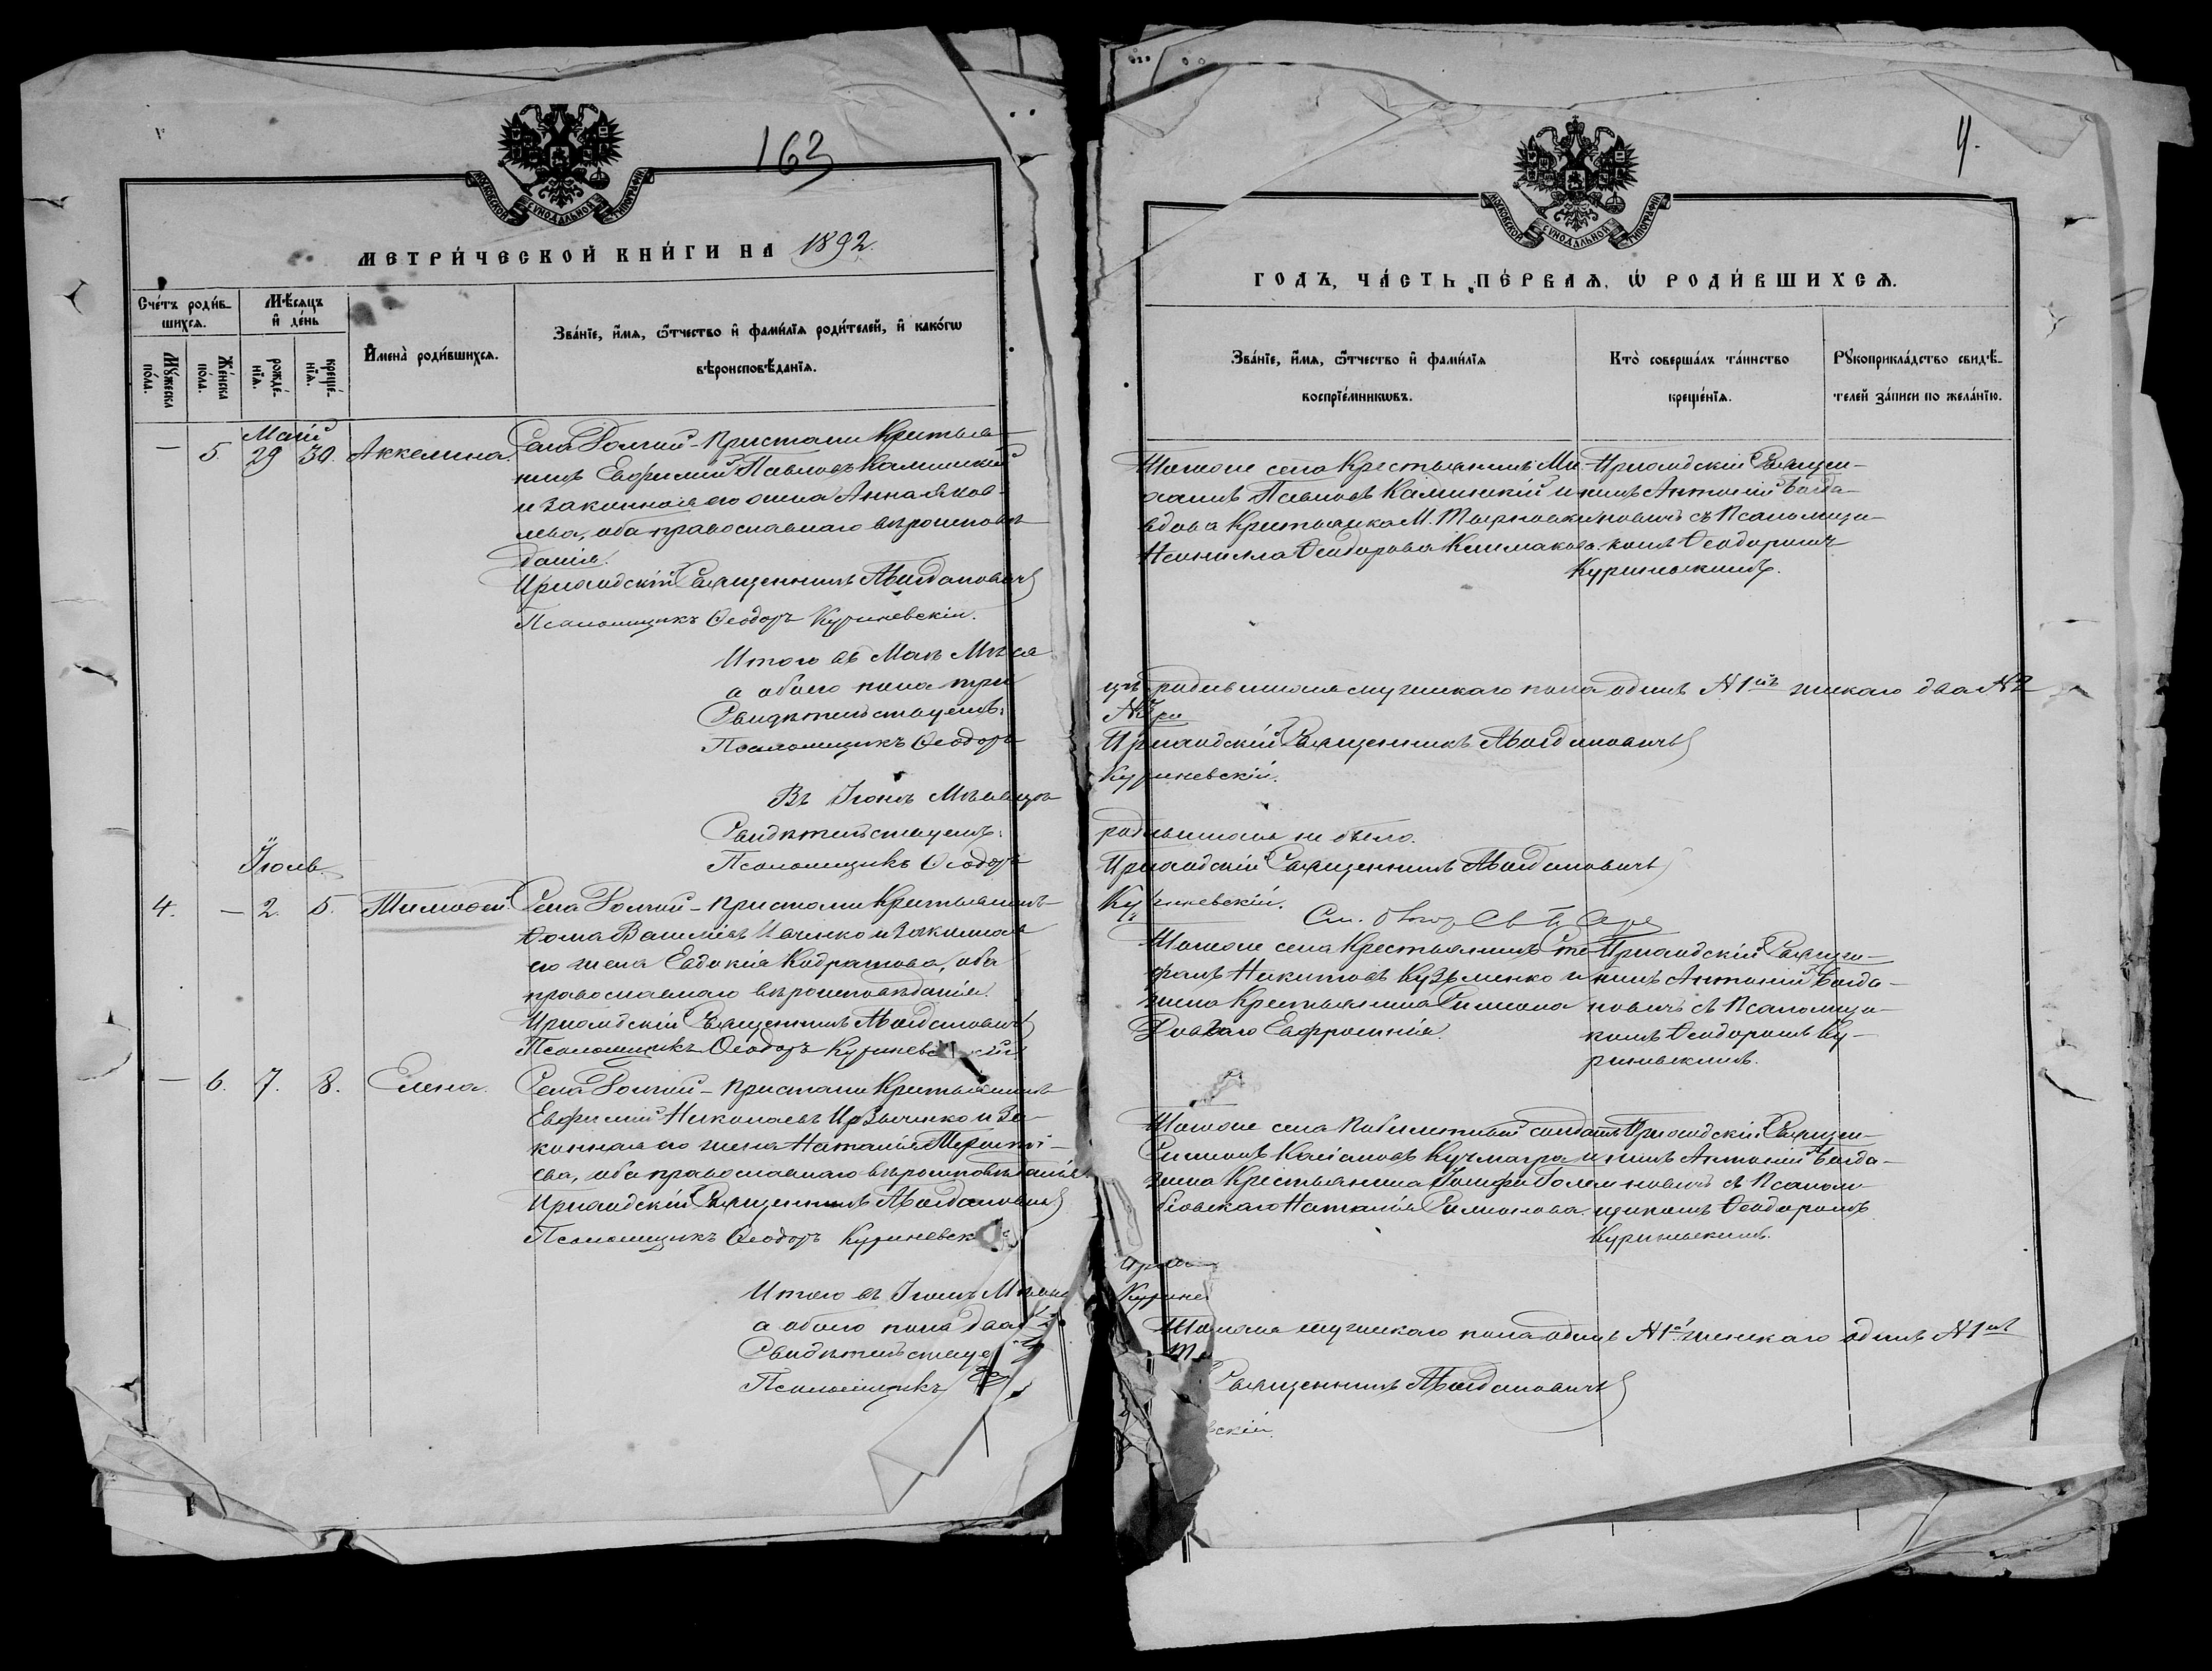 163
МОСКОВСКОЙ СУНОДАЛЬНОЙ ТИПОГРАФІИ
МЕТРИ́ЧЕСКОЙ КНИ́ГИ НА 1892.
Сче́тъ роди́в-
шихсѧ.
Мѣ́сѧцъ
и҆ де́нь
Мꙋ́жеска
по́ла.
Же́нска
по́ла.
рожде́-
нїѧ.
креще́-
нїѧ.
И҆мена̀ роди́вшихсѧ.
Зва́нїе, и҆́мѧ, ѻ҆́тчество и҆ фами́лїѧ роди́телей, и҆ како́гѡ
вѣроисповѣ́данїѧ.
Май
— 5. 29 30. Аккелина.
Села Долгой-Пристани Крестья-
нинъ Евфимий Павловъ Калинский
и законная его жена Анна Яков-
лева, оба православнаго вѣроисповѣ-
данія.
Приходскій Священникъ А. Богдановичъ
Псаломщикъ Ѳеодоръ Куриневскій.
Итого въ Маѣ Мѣся
а обоего пола три
Свидѣтельствуемъ:
Псаломщикъ Ѳеодоръ
Въ Іюнѣ Мѣсяцѣ
Свидѣтельствуемъ:
Псаломщикъ Ѳеодоръ
Іюль
4. — 2. 5. Тимофей.
Села Долгой-Пристани Крестьянинъ
Ѳома Васильевъ Ивченко и законная
его жена Евдокія Кодратова, оба
православнаго вѣроисповѣданія.
Приходскій Священникъ А. Богдановичъ
Псаломщикъ Ѳеодоръ Куриневскій
— 6. 7. 8. Елена.
Села Долгой-Пристани Крестьянинъ
Евфимий Николаевъ и за-
конная его жена Наталія
ева, оба православнаго вѣроисповѣданія.
Приходскій Священникъ А. Богдановичъ
Псаломщикъ Ѳеодоръ Куриневск
Итого въ Іюлѣ Мѣсяц
а обоего пола два
Свидѣтельствуе
Псаломщикъ
4.
МОСКОВСКОЙ СУНОДАЛЬНОЙ ТИПОГРАФІИ
ГОДЪ, ЧА́СТЬ ПЕ́РВАѦ, Ѡ҆ РОДИ́ВШИХСѦ.
Зва́нїе, и҆́мѧ, ѻ҆́тчество и҆ фами́лїѧ
воспрїе́мникѡвъ.
Кто̀ соверша́лъ та́инство
креще́нїѧ.
Рꙋкоприкла́дство свидѣ́-
телей за́писи по жела́нїю.
Тогоже села Крестьянинъ Ми-
хаилъ Павловъ Калинскій и
вдова Крестьянка М. Тырновки
Неонилла Ѳеодорова Климакова.
Приходскій Священ-
никъ Антоній Богда-
новичъ съ Псаломщи-
комъ Ѳеодоромъ
Куриневскимъ.
цѣ родившихся мужескаго пола одинъ №1й женскаго два №2
Приходскій Священникъ А. Богдановичъ
Куриневскій.
родившихся не было.
Приходскій Священникъ А. Богдановичъ
Куриневскій.
Тогоже села Крестьянинъ Сте-
фанъ Никитовъ Кузьменко и
жена Крестьянина Симеона
Евфросинія.
Приходскій Священ-
никъ Антоній Богда-
новичъ съ Псаломщи-
комъ Ѳеодоромъ Ку-
риневскимъ.
Тогоже села билетный солдатъ
Симеонъ Касіановъ Кучмагра и
жена Крестьянина Іосифа Голем-
бовскаго Наталія Симеонова.
Приходскій Священ-
никъ Антоній Богда-
новичъ съ Псалом-
щикомъ Ѳеодоромъ
Куриневскимъ.
Курине
мужескаго пола одинъ №1й женскаго одинъ №1й
Священникъ А. Богдановичъ
вскій.